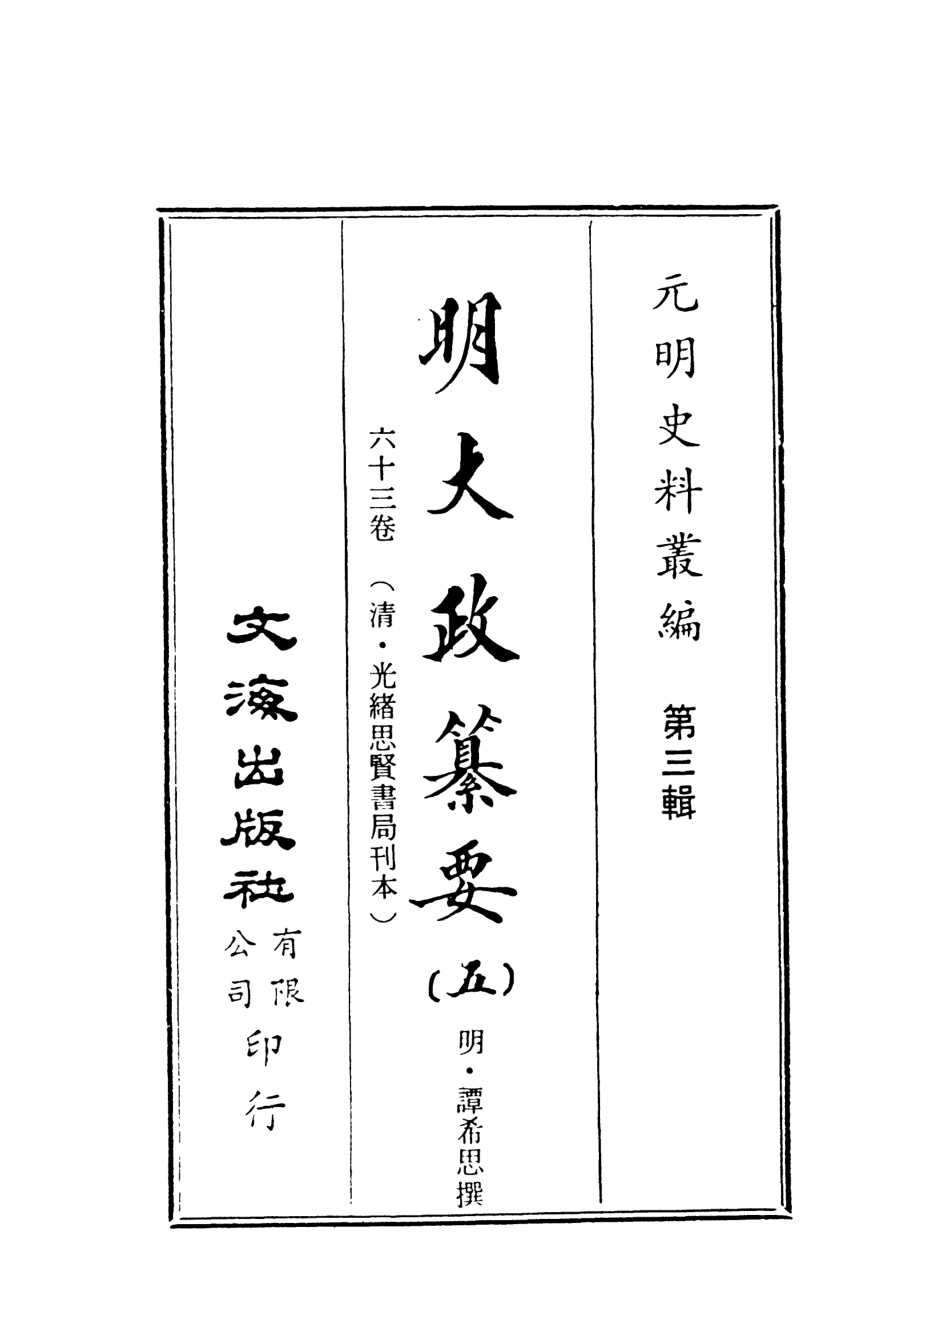 元明史料叢編 第三輯
明大政纂要(五) 明·譚希思撰
六十三卷 (清·光緒思賢書局刊本)
文海出版社有限公司印行